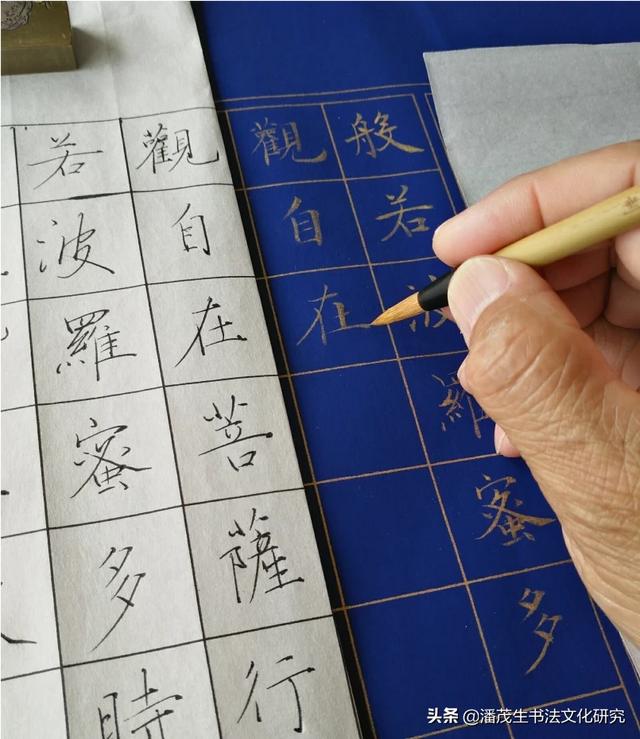 般若波羅蜜多
觀自在
觀自在菩薩行
若波羅蜜多時
头条 @潘茂生书法文化研究